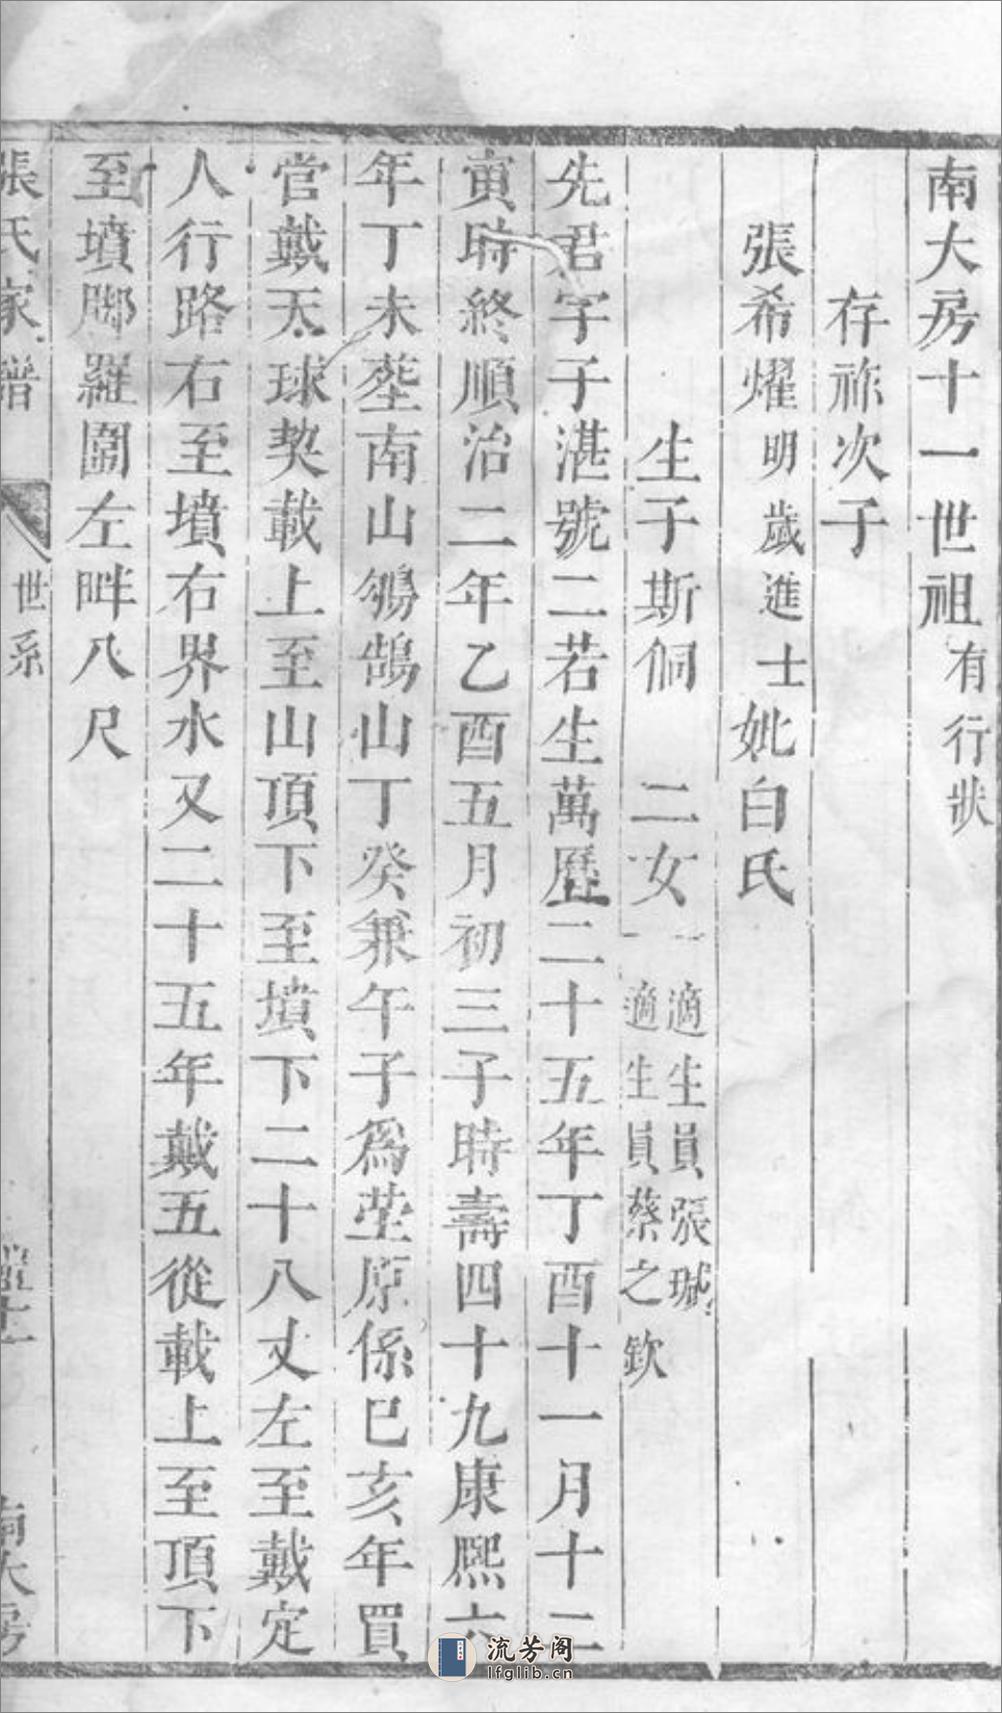 南大房十一世祖有行狀
存祚次子
張希燿明歲進士妣白氏
生子斯侗 二女一適生員張珹一適生員蔡之欽
先君字子湛號二若生萬曆二十五年丁酉十一月十二
寅時終順治二年乙酉五月初三子時壽四十九康熙六
年丁未塟南山鵓鴣山丁癸兼午子為塋原係巳亥年買
當戴天球契載上至山頂下至墳下二十八丈左至戴定
人行路右至墳右界水又二十五年戴五從載上至頂下
至墳脚羅圍左畔八尺
張氏家譜 世系 南大房
流芳阁
lfglib.cn